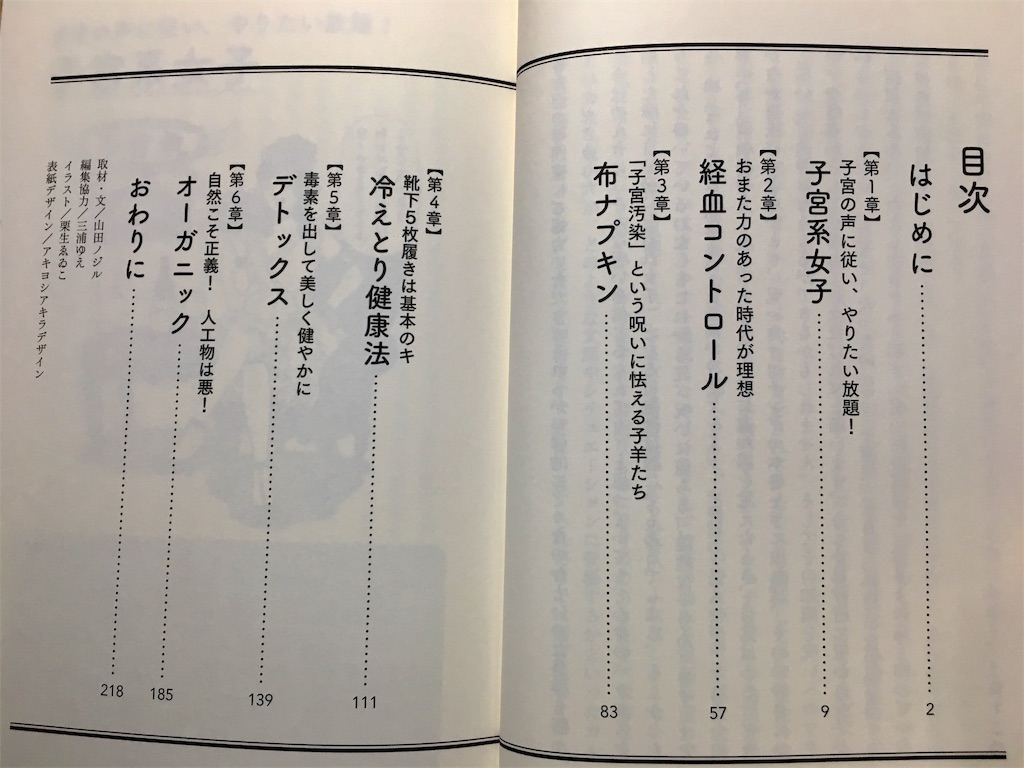 目次
はじめに……2
【第1章】
子宮の声に従い、やりたい放題！
子宮系女子……9
【第2章】
おまた力のあった時代が理想
経血コントロール……57
【第3章】
「子宮汚染」という呪いに怯える子羊たち
布ナプキン……83
【第4章】
靴下5枚履きは基本のキ
冷えとり健康法……111
【第5章】
毒素を出して美しく健やかに
デトックス……139
【第6章】
自然こそ正義！ 人工物は悪！
オーガニック……185
おわりに……218
取材・文／山田ノジル
編集協力／三浦ゆえ
イラスト／栗生ゑゐこ
表紙デザイン／アキヨシアキラデザイン